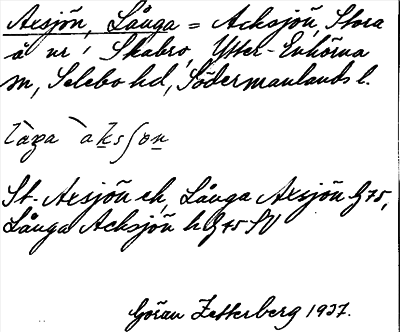 Axsjön, Långa = Acksjön, Stora
å nr 1 Skabro, Ytter-Enhörna
sn, Selebo hd, Södermanlands l.
St. Axsjön ek, Långa Axsjön G75,
Långa Acksjön h G75 SV
Göran Zetterberg 1937.